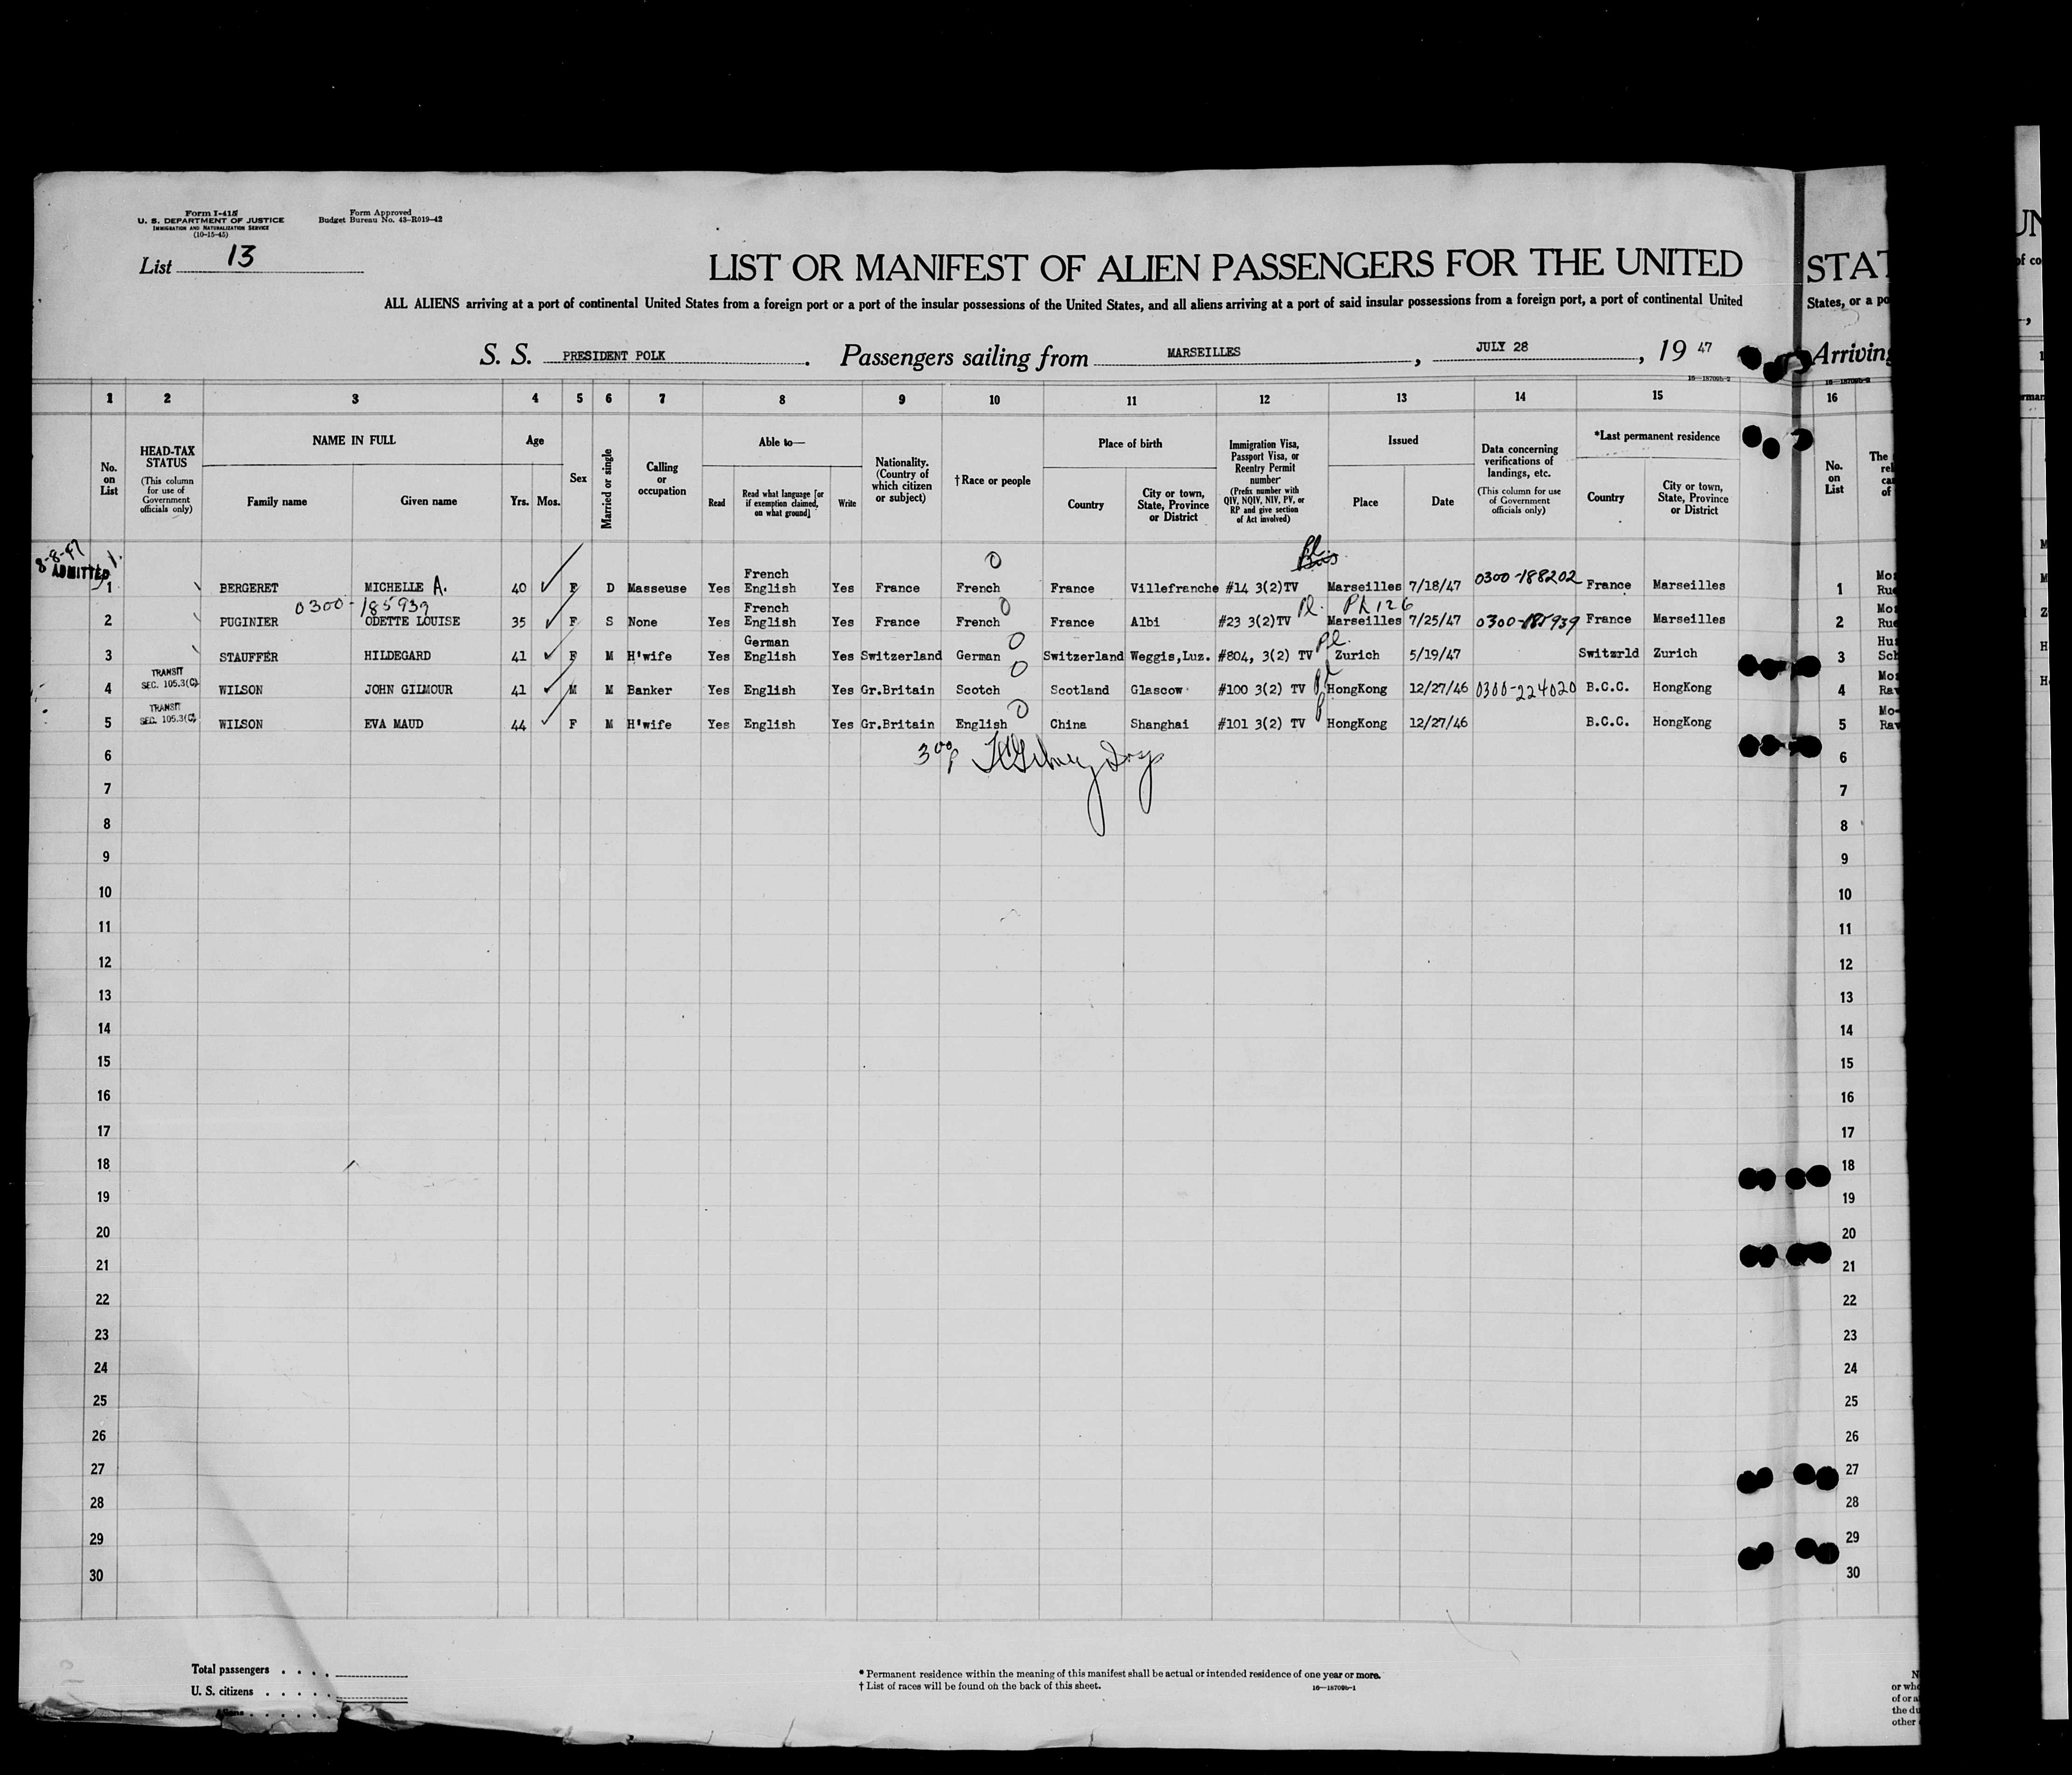 Form I-415
U. S. DEPARTMENT OF JUSTICE
IMMIGRATION AND NATURALIZATION SERVICE
(10-15-45)
Form Approved
Budget Bureau No. 43-R019-42
List 13
LIST OR MANIFEST OF ALIEN PASSENGERS FOR THE UNITED
STAT
ALL ALIENS arriving at a port of continental United States from a foreign port or a port of the insular possessions of the United States, and all aliens arriving at a port of said insular possessions from a foreign port, a port of continental United
States, or a po
S. S. PRESIDENT POLK. Passengers sailing from MARSEILLES, JULY 28, 19 47
Arriving
16—18709b-2
1 2 3 4 5 6 7 8 9 10 11 12 13 14 15 16
No. on List
HEAD-TAX STATUS (This column for use of Government officials only)
NAME IN FULL
Family name
Given name
Age
Yrs. Mos.
Sex
Married or single
Calling or occupation
Able to—
Read
Read what language [or if exemption claimed, on what ground]
Write
Nationality. (Country of which citizen or subject)
†Race or people
Place of birth
Country
City or town, State, Province or District
Immigration Visa, Passport Visa, or Reentry Permit number (Prefix number with QIV, NQIV, NIV, PV, or RP and give section of Act involved)
Issued
Place
Date
Data concerning verifications of landings, etc. (This column for use of Government officials only)
*Last permanent residence
Country
City or town, State, Province or District
No. on List
8-8-47
ADMITTED
1 BERGERET MICHELLE A. 40 F D Masseuse Yes French English Yes France French France Villefranche #14 3(2)TV Marseilles 7/18/47 0300-188202 France Marseilles 1
0300-185939
2 PUGINIER ODETTE LOUISE 35 F S None Yes French English Yes France French France Albi #23 3(2)TV Marseilles 7/25/47 0300-185939 France Marseilles 2
3 STAUFFER HILDEGARD 41 F M H'wife Yes German English Yes Switzerland German Switzerland Weggis,Luz. #804, 3(2) TV Zurich 5/19/47 Switzrld Zurich 3
TRANSIT SEC. 105.3(C)
4 WILSON JOHN GILMOUR 41 M M Banker Yes English Yes Gr.Britain Scotch Scotland Glascow #100 3(2) TV HongKong 12/27/46 0300-224020 B.C.C. HongKong 4
TRANSIT SEC. 105.3(C)
5 WILSON EVA MAUD 44 F M H'wife Yes English Yes Gr.Britain English China Shanghai #101 3(2) TV HongKong 12/27/46 B.C.C. HongKong 5
6 6
7 7
8 8
9 9
10 10
11 11
12 12
13 13
14 14
15 15
16 16
17 17
18 18
19 19
20 20
21 21
22 22
23 23
24 24
25 25
26 26
27 27
28 28
29 29
30 30
Total passengers
U. S. citizens
Aliens
* Permanent residence within the meaning of this manifest shall be actual or intended residence of one year or more.
† List of races will be found on the back of this sheet.
16—18709b-1